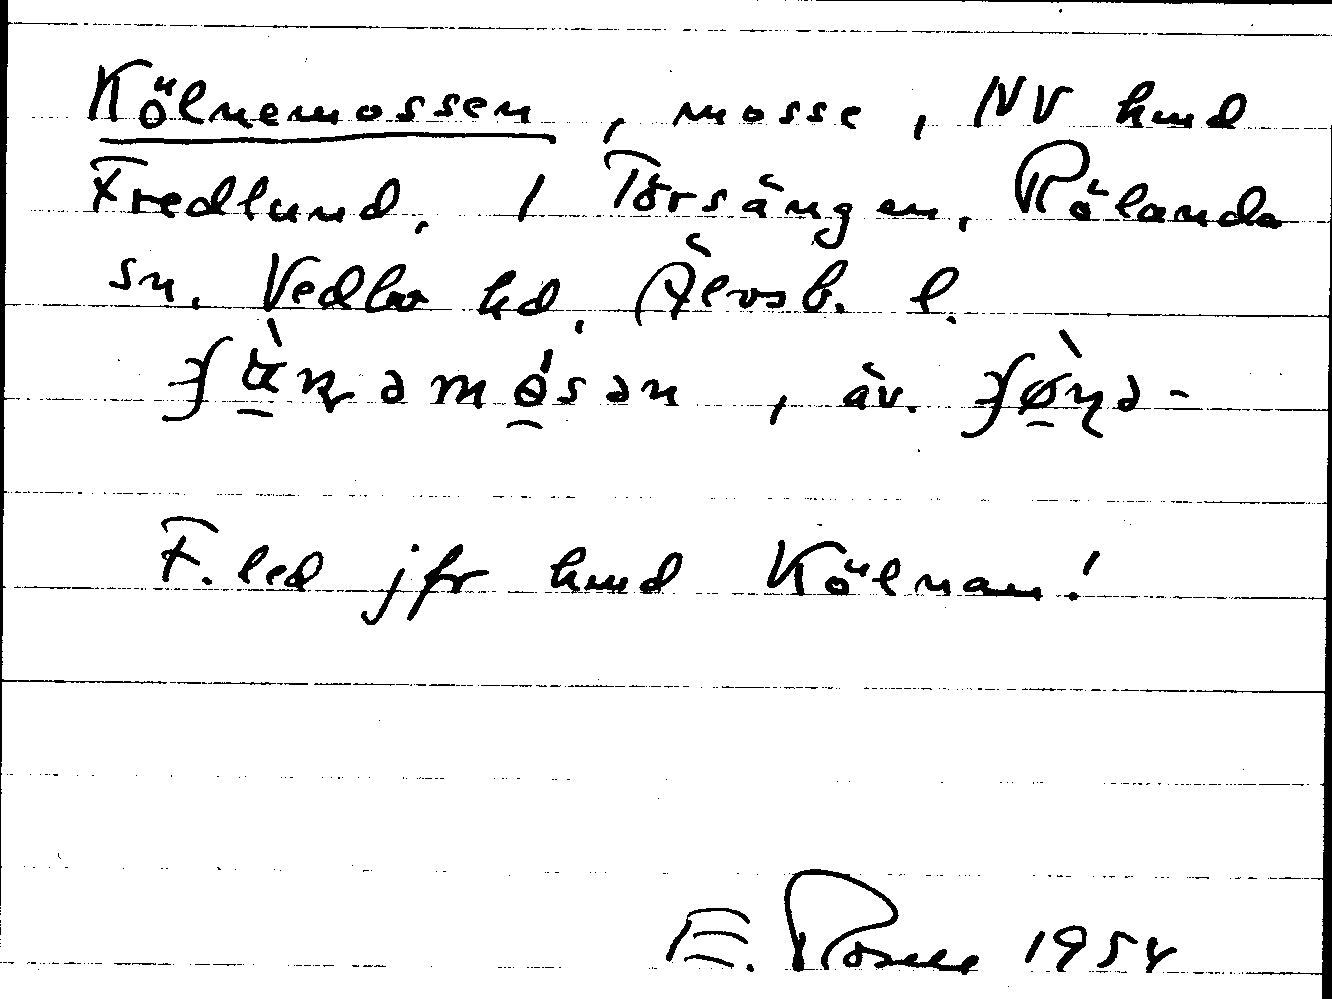 Kölnemossen, mosse, NV hmd
Fredlund, 1 Torsängen, Rölanda
sn. Vedbo hd, Älvsb. l.
, äv.
F. led jfr hmd Kölnan!
E. 1954